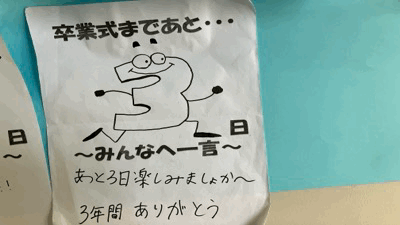 卒業式まであと・・・
3
日
～みんなへ一言～
あと3日楽しみましょか～
3年間 ありがとう
日
～
！